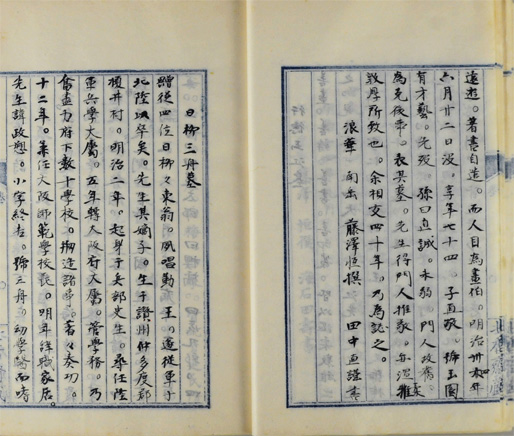 遠遊。著書自造。而人目為畫伯。明治卅年
六月廿二日没。享年七十四。子直哉。玉圃
有才藝。先歿。孫曰直誠。未弱。門人故舊
為。表其墓。先生待門人
致厚所致也。余相交四十年。乃為記之。
浪華 南岳 藤澤恒撰 田中直謹書
日柳三舟墓
贈従四位日柳々東翁。夙唱勤王。遵従軍于
北陸以卒矣。先生其嫡子。生于讃州仲多度郡
榎井村。明治二年。起身于兵部史生。尋任陸
軍兵學大屬。五年轉大阪府大屬。管學務。乃
奮盡力府下數十學校。諸學。著々奏功。
十二年。兼任大阪師範學校長。明年辞職家居。
先生諱政愬。小字終吉。號三舟。幼學醫而嗜